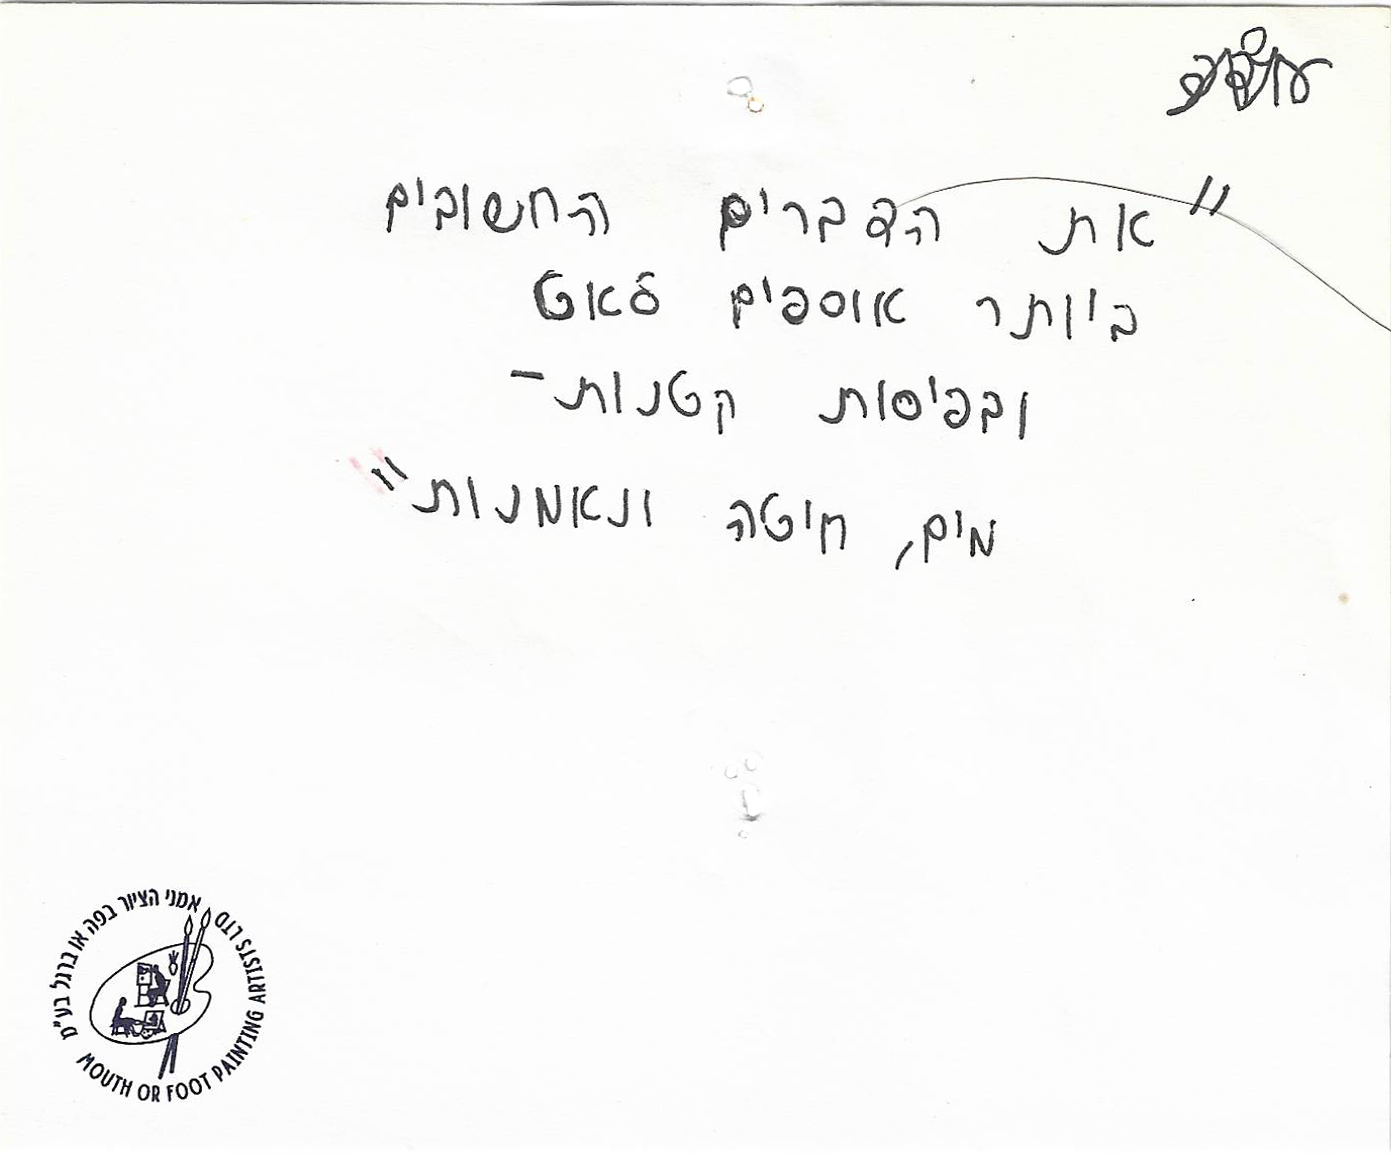 "את הדברים החשובים
ביותר אוספים לאט
ובפיסות קטנות-
מים, חיטה ונאמנות"
אמני הציור בפה או ברגל בע"מ
MOUTH OR FOOT PAINTING ARTISTS LTD